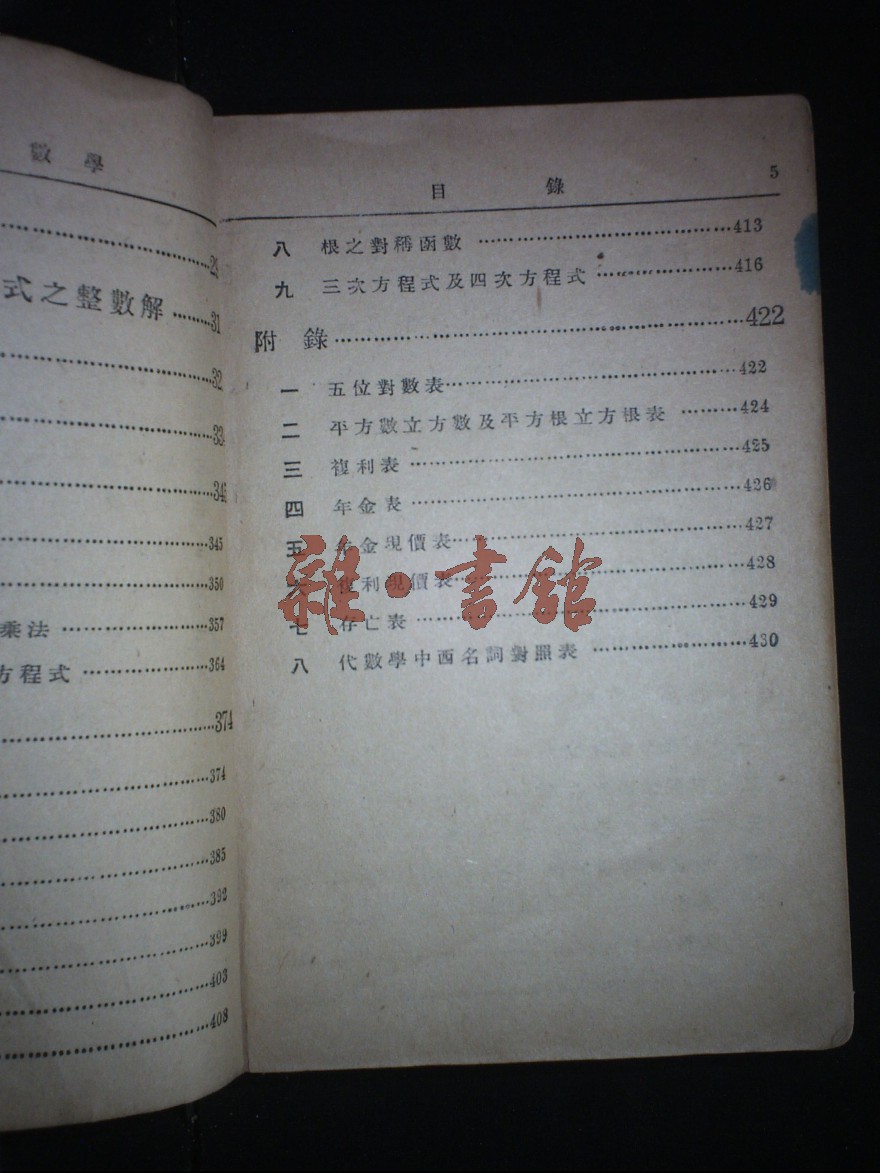 數學
24
式之整數解………31
32
33
34
345
350
乘法………357
方程式………364
374
374
380
385
392
399
403
408
目錄 5
八 根之對稱函數………413
九 三次方程式及四次方程式………416
附錄………422
一 五位對數表………422
二 平方數立方數及平方根立方根表………424
三 複利表………425
四 年金表………426
五 年金現價表………427
六 複利現價表………428
七 存亡表………429
八 代數學中西名詞對照表………430
雜·書館